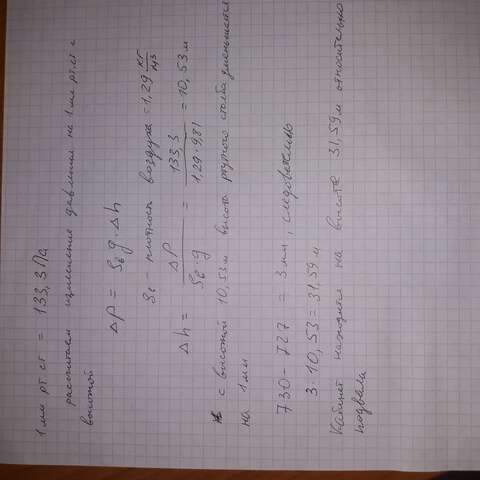 1 мм рт ст = 133,3 Па
рассчитаем изменение давления на 1 мм рт.ст с
высотой
ΔP = ρв g · Δh
ρв - плотность воздуха = 1,29 кг/м3
Δh = ΔP / ρв · g = 133,3 / 1,29 · 9,81 = 10,53 м
с высотой 10,53 м высота ртутного столба уменьшается
на 1 мм
730 - 727 = 3 мм, следовательно
3 · 10,53 = 31,59 м
Кабинет находится на высоте 31,59 м относительно
подвала